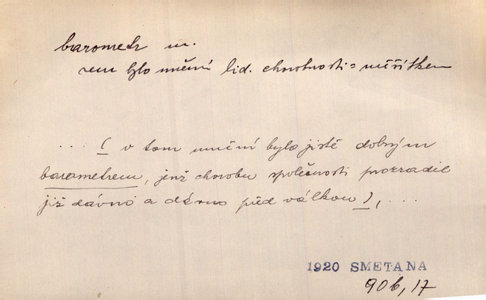 barometr m.
rem bylo umění lid. chorobnosti = měřítkem
... ( v tom umění bylo jistě dobrým
barometrem, jenž chorobu společnosti prozradil
již dávno a dávno před válkou ), ...
1920 SMETANA
906, 17